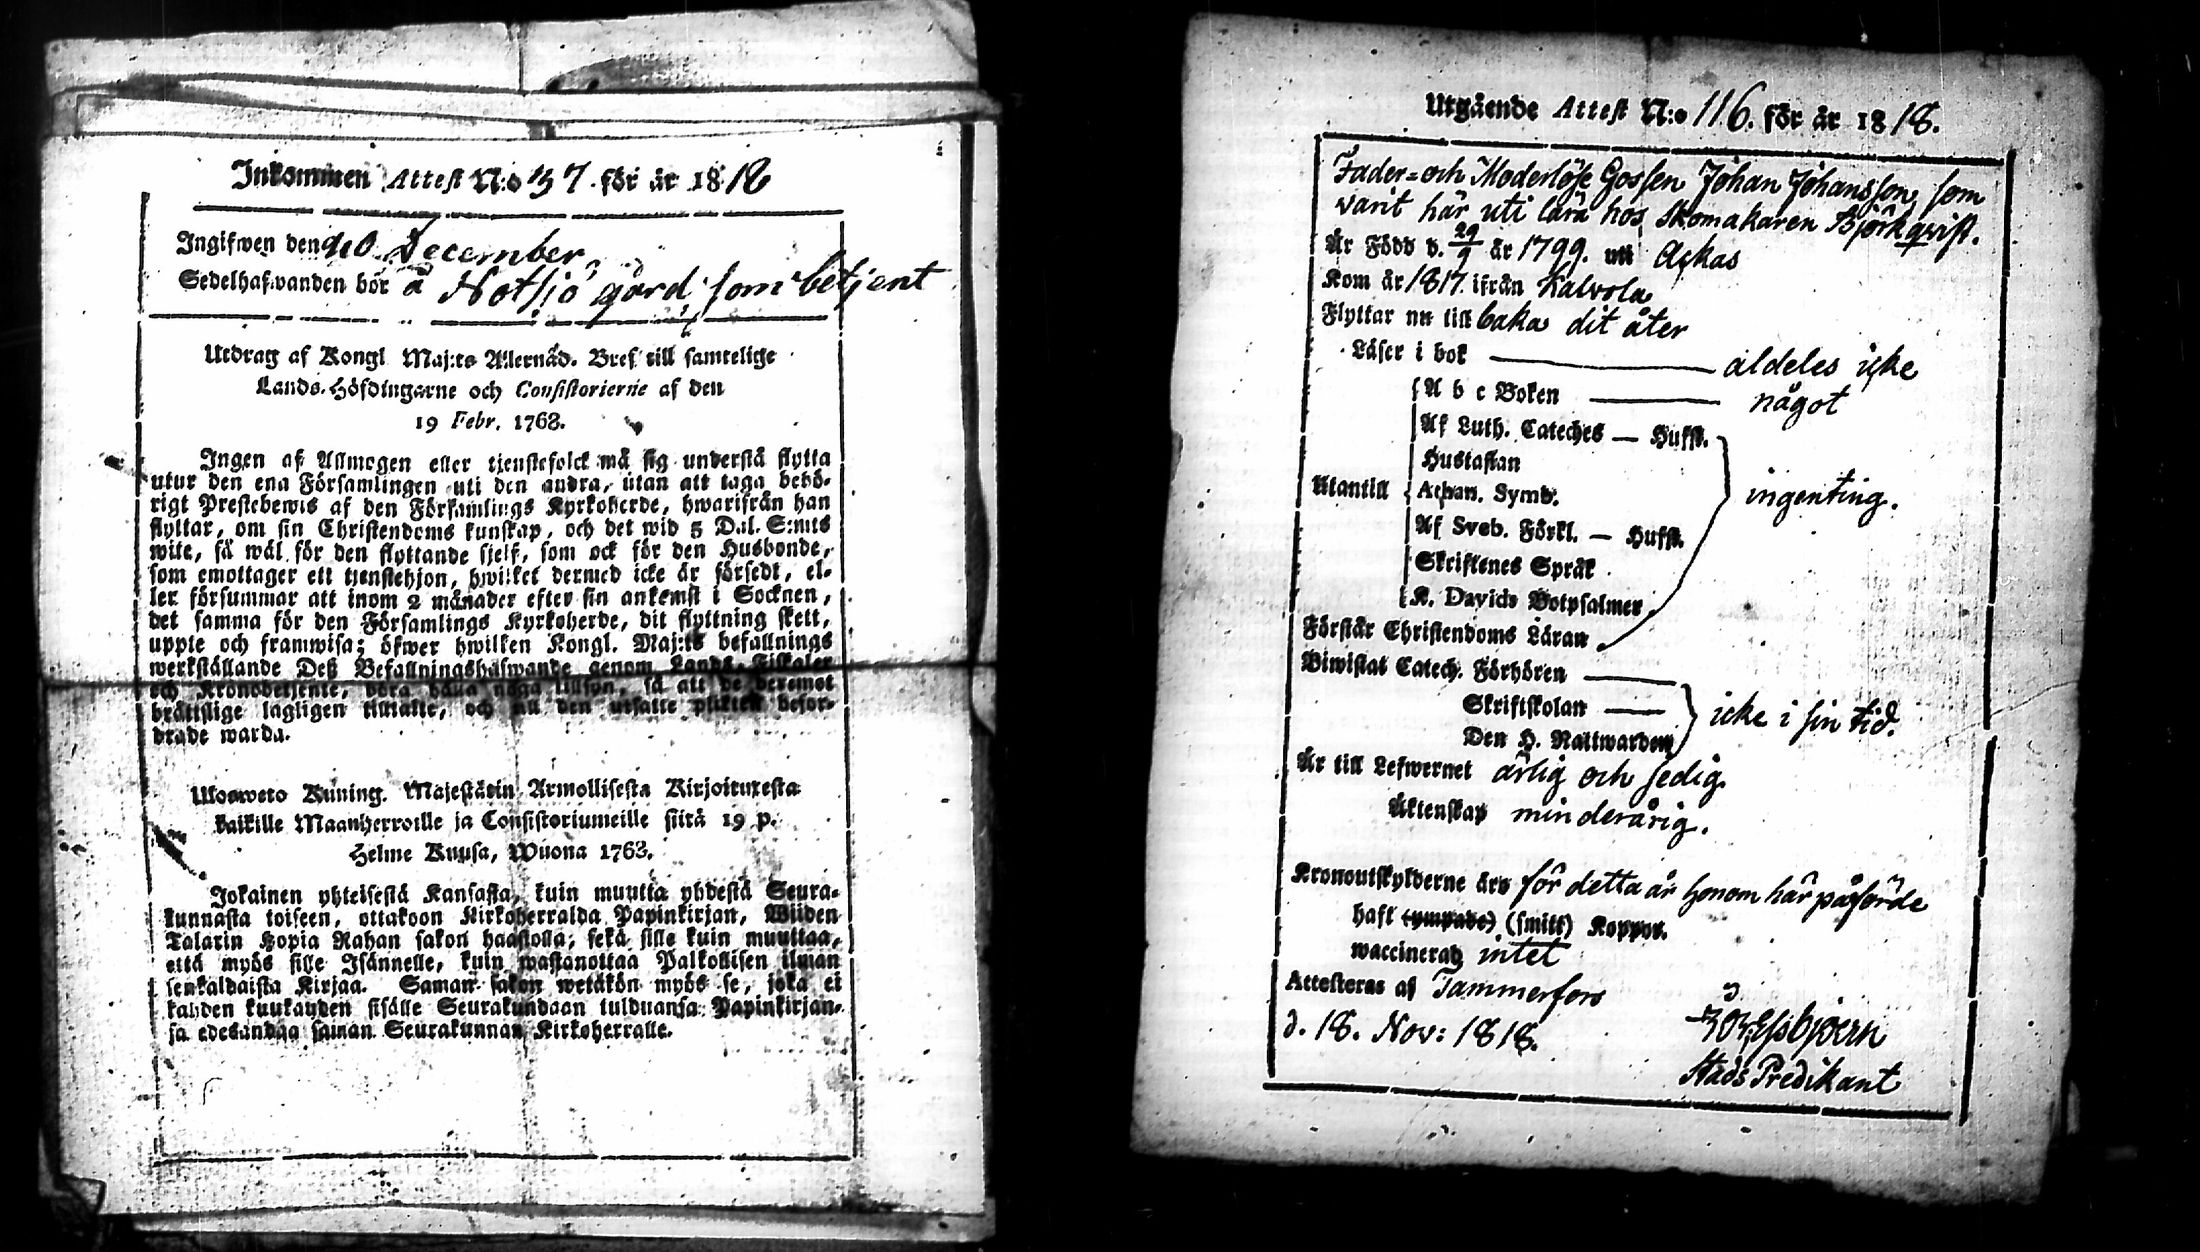 Inkommen Attest N:o 37. för år 1818
Ingifwen den 10 December
Sedelhafwanden bör å Notsjö gård som betjent
Utdrag af Kongl. Maj:ts Allernåd. Bref till samtelige
Lands-Höfdingarne och Consistorierne af den
19 Febr. 1763.
Ingen af Allmogen eller tjenstefolck må sig understå flytta
utur den ena Församlingen uti den andra, utan att taga behö-
rigt Prestebewis af den Församlings Kyrkoherde, hwarifrån han
flyttar, om sin Christendoms kunskap, och det wid 5 Dal. S:mts
wite, så wäl för den flyttande sjelf, som ock för den Husbonde,
som emottager ett tjenstehjon, hwilket dermed icke är försedt, el-
ler försummar att inom 2 månader efter sin ankomst i Socknen,
det samma för den Församlings Kyrkoherde, dit flyttning skett,
uppte och framwisa; öfwer hwilken Kongl. Maj:ts befallnings
werkställande Deß Befallningshafwande genom Lands-Fiskaler
och Kronobetjente, böra hålla noga tillsyn, så att de deremot
brättslige lagligen tilltalte, och till den utsatte plikten befor-
drade warda.
Ulosweto Kuning. Majestätin Armollisesta Kirjoituxesta
kaikille Maanherroille ja Consistoriumeille siitä 19 p.
Helme Kuusa, Wuona 1763.
Jokainen yhteisestä Kansasta, kuin muutta yhdestä Seura-
kunnasta toiseen, ottakoon Kirkoherralda Papinkirjan, Wiiden
Talarin Hopia Rahan sakon haastolla; sekä sille kuin muuttaa,
että myös sille Isännelle, kuin wastanottaa Palkollisen ilman
senkaldaista Kirjaa. Saman sakon wetäkön myös se, joka ei
kahden kuukauden sisälle Seurakundaan tulduansa Papinkirjan-
sa edesandaa saman Seurakunnan Kirkoherralle.
Utgående Attest N:o 116. för år 1818.
Fader- och Moderlöse Gossen Johan Johansson, som
varit här uti lära hos skomakaren Björkqvist.
Är Född d. 29/9 år 1799. uti Ackas
Kom år 1817 ifrån Kalvola
Flyttar nu till baka dit åter
Läser i bok aldeles icke
A b c Boken något
Af Luth. Cateches — Hufst.
Hustaflan
Utantill Athan. Symb. ingenting.
Af Sveb. Förkl. — Hufst.
Skriftenes Språk
K. Davids Botpsalmer
Förstår Christendoms Läran
Biwistat Catech. Förhören
Skriftskolan icke i sin tid.
Den H. Nattwarden
Är till Lefwernet ärlig och sedig.
Äktenskap minderårig.
Kronoutskylderne äro för detta år honom här påförde
haft (ympade) (smitt) Koppor.
waccinerad intet
Attesteras af Tammerfors
d. 18. Nov: 1818.
Stads Predikant